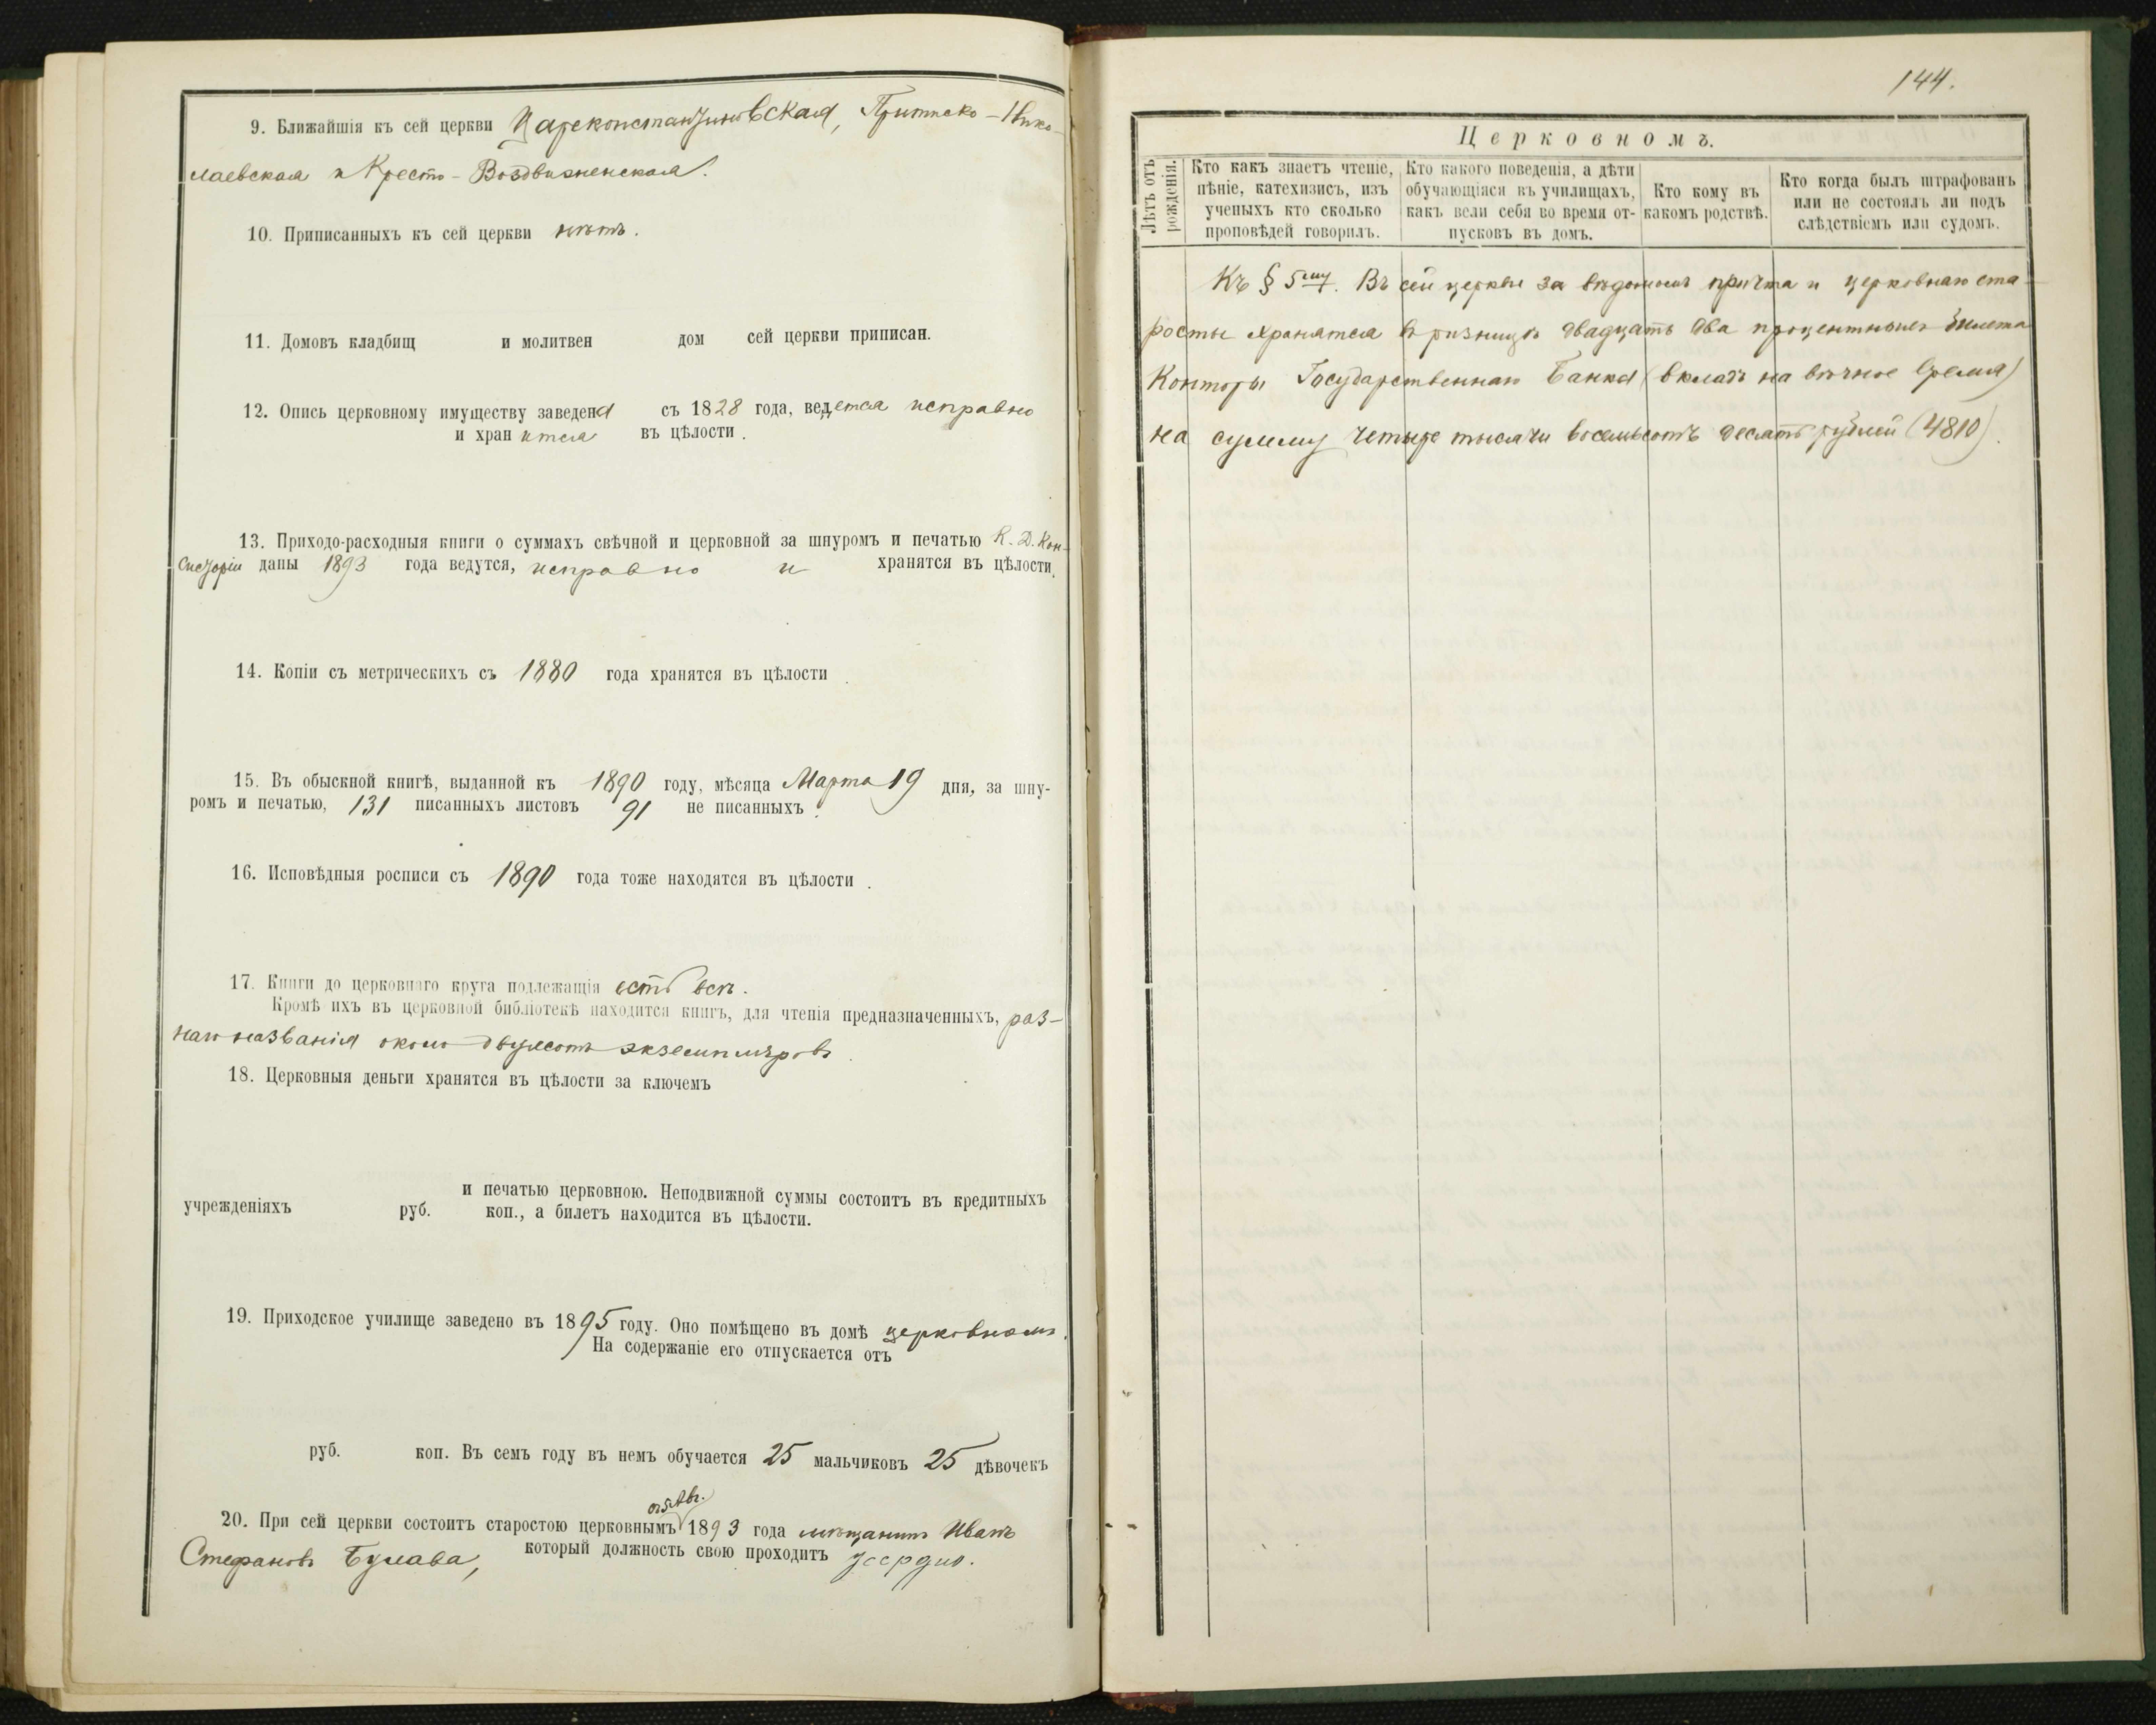 9. Ближайшія къ сей церкви Цареконстантиновская, Притиско-Нико-
лаевская и Кресто-Воздвиженская.
10. Приписанныхъ къ сей церкви нѣтъ.
11. Домовъ кладбищ и молитвен дом сей церкви приписан.
12. Опись церковному имуществу заведена съ 1828 года, ведется исправно
и хранится въ цѣлости.
13. Приходо-расходныя книги о суммахъ свѣчной и церковной за шнуромъ и печатью К. Д. Кон-
систоріи даны 1893 года ведутся, исправно и хранятся въ цѣлости.
14. Копіи съ метрическихъ съ 1880 года хранятся въ цѣлости.
15. Въ обыскной книгѣ, выданной къ 1890 году, мѣсяца Марта 19 дня, за шну-
ромъ и печатью, 131 писанныхъ листовъ 91 не писанныхъ.
16. Исповѣдныя росписи съ 1890 года тоже находятся въ цѣлости.
17. Книги до церковнаго круга подлежащія есть всѣ.
Кромѣ ихъ въ церковной библіотекѣ находится книгъ, для чтенія предназначенныхъ, раз-
наго названія около двухсотъ экземпляровъ.
18. Церковныя деньги хранятся въ цѣлости за ключемъ
и печатью церковною. Неподвижной суммы состоитъ въ кредитныхъ
учрежденіяхъ руб. коп., а билетъ находится въ цѣлости.
19. Приходское училище заведено въ 1895 году. Оно помѣщено въ домѣ церковномъ.
На содержаніе его отпускается отъ
руб. коп. Въ семъ году въ немъ обучается 25 мальчиковъ 25 дѣвочекъ
20. При сей церкви состоитъ старостою церковнымъ 1893 года мѣщанинъ Иванъ
Стефановъ Булава, который должность свою проходитъ усердно.
144.
Церковномъ.
Лѣтъ отъ рожденія.
Кто какъ знаетъ чтеніе, пѣніе, катехизисъ, изъ ученыхъ кто сколько проповѣдей говорилъ.
Кто какого поведенія, а дѣти обучающіяся въ училищахъ, какъ вели себя во время отпусковъ въ домъ.
Кто кому въ какомъ родствѣ.
Кто когда былъ штрафованъ или не состоялъ ли подъ слѣдствіемъ или судомъ.
Къ § 5му. Въ сей церкви за вѣдомомъ причта и церковнаго ста-
росты хранятся въ ризницѣ двадцать два процентныхъ билета
Конторы Государственнаго Банка (вкладъ на вѣчное время)
на сумму четыре тысячи восемьсотъ десять рублей (4810).